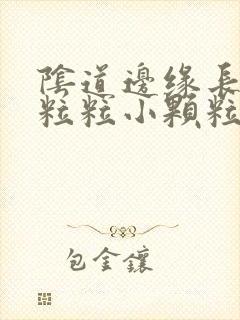 陰道邊緣長
粒粒小顆粒
包金鑲